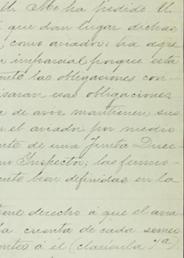 Me ha pedido U
que dan lugar dichas
como aviador; ha de
imparcial porque está
las obligaciones con-
esas obligaciones
de avor mantienen sus
el aviador por medio
de una Junta Direc-
Inspector; las
bien definidas en la
derecho á que el
la cuenta de cada
á él (cláusula 7ª)